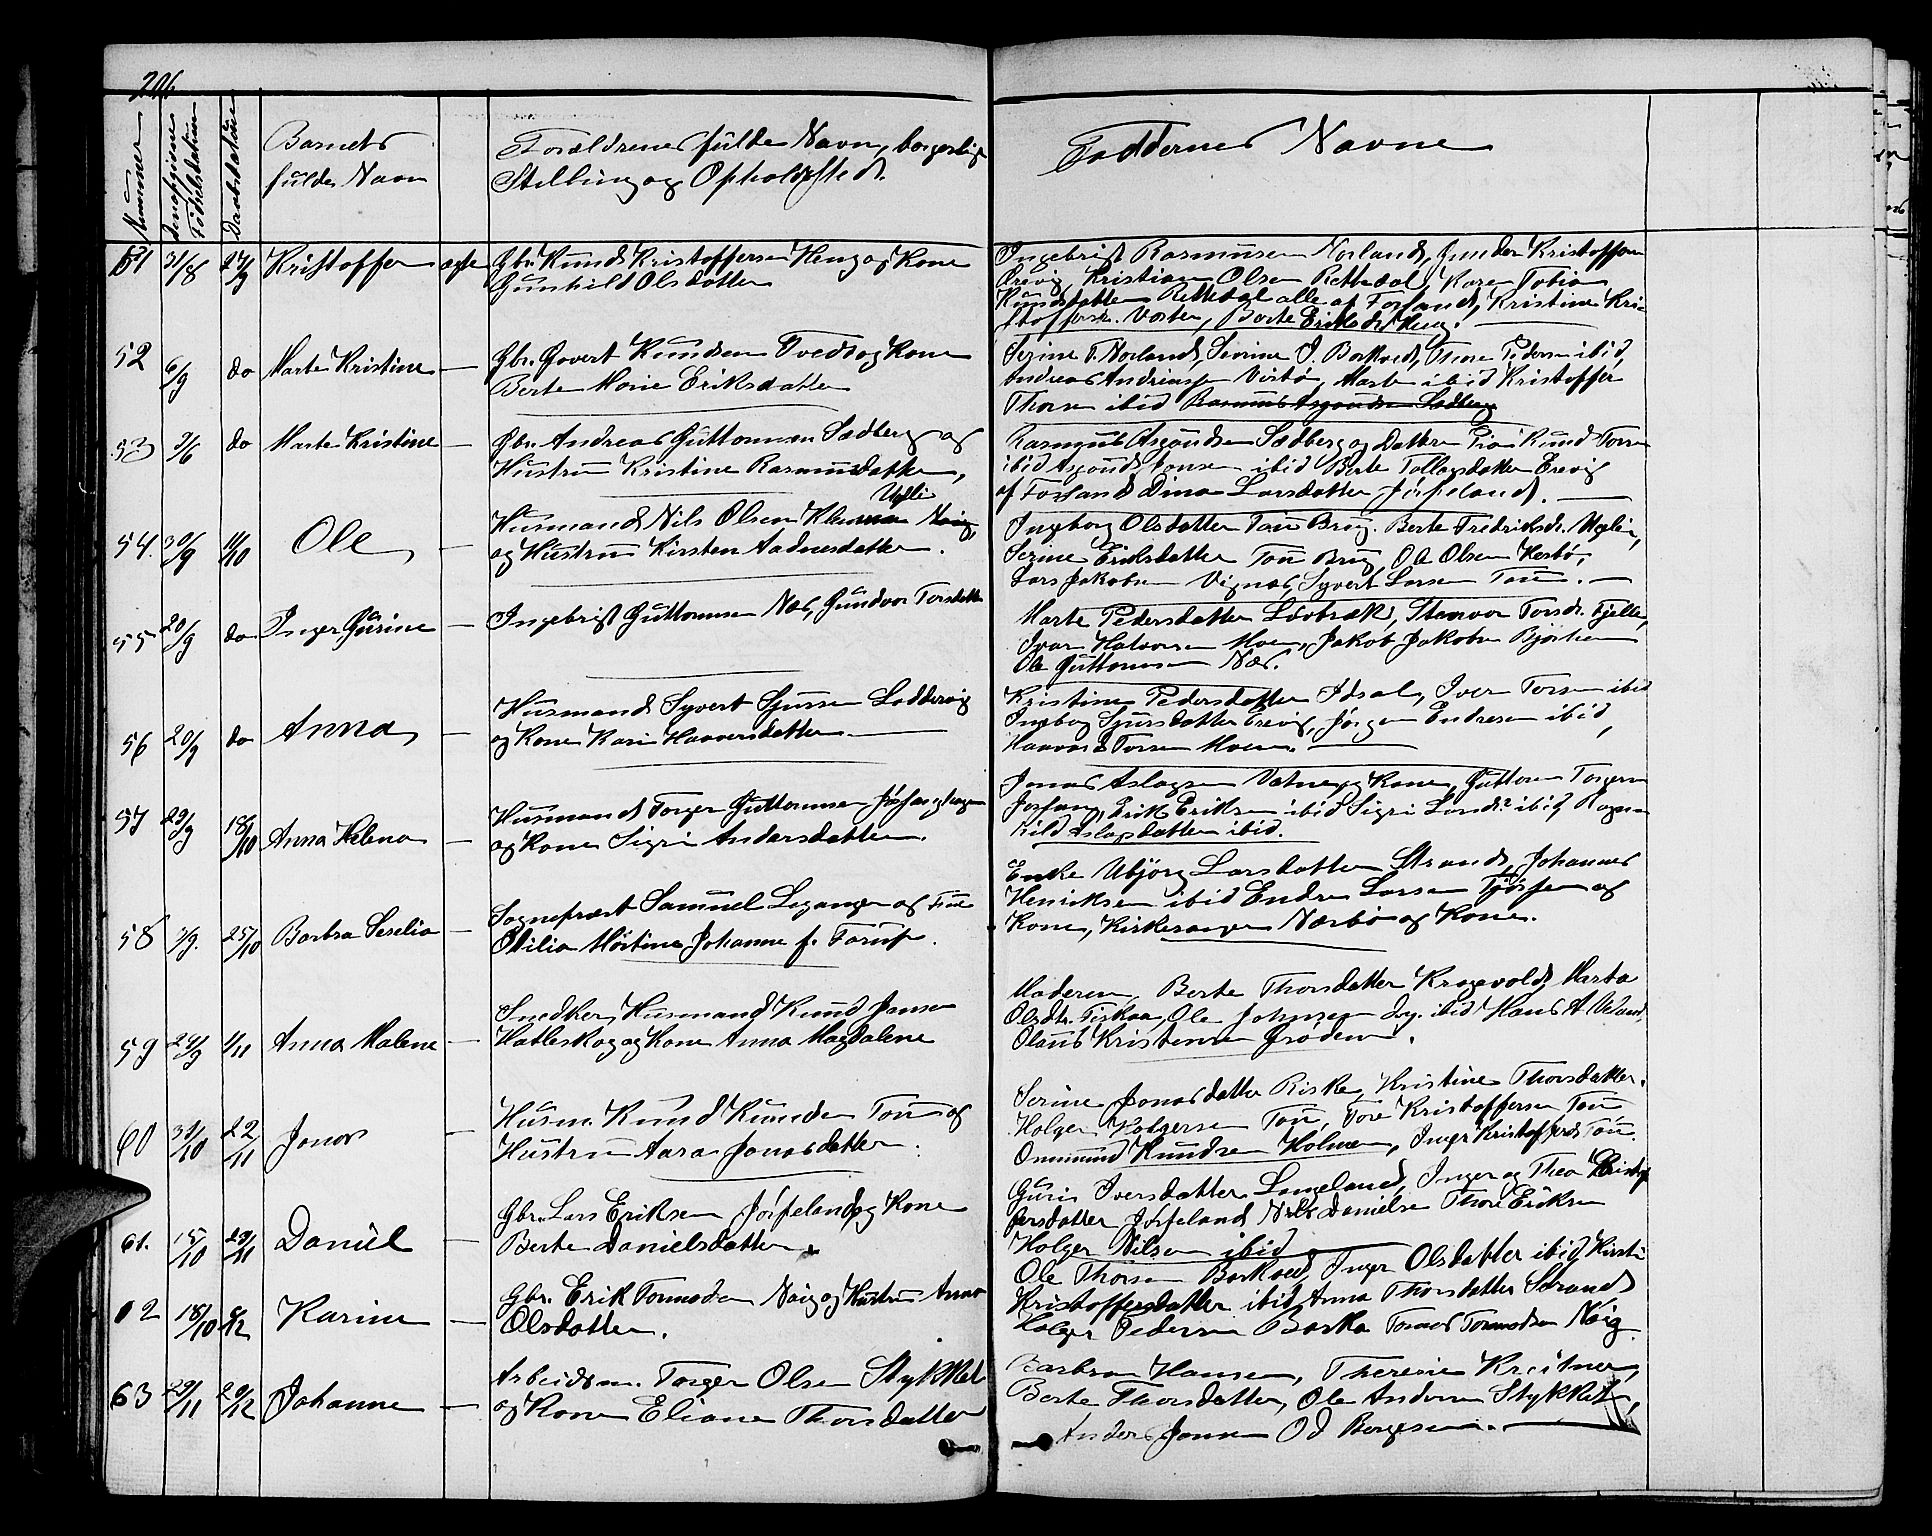 206
Nummer
Fødselsdatum
Daabsdatum
Barnets
fulde Navn
Forældrenes fulde Navn, borgerlige
Stilling og Opholdssted.
Faddernes Navne
51 31/8 27/9 Kristoffer ægte Gbr. Knud Kristoffersen Heng og Kone
Gunhild Olsdatter
Ingebrigt Rasmusen Norland, Gunder Kristoffersen
Erevig, Kristian Olsen Rettedal, Karen Tobia
Knudsdatter Rettedal alle af Forsand, Kristine Kri-
stoffersd. Vorten, Berte Eriksd. Heng.
52 6/9 do Marte Kristine — Gbr. Govert Knudsen Tveds og Kone
Berte Marie Eriksdatter
Serine T. Norland, Severine J. Barkved, Thore Pedersen ibid,
Andreas Andreasen Verbø, Marte ibid Kristoffer
Thorsen ibid Rasmus Asgoudsen Sædberg
53 3/6 do Marte Kristine — Gbr. Andreas Guttormsen Sædberg og
Hustru Kristine Rasmusdatter,
Rasmus Asgoudsen Sædberg og Datter Pia, Knud Torsen
ibid Asgoud Jonsen ibid Berte Tollagsdatter Erevig
af Forsand Dina Larsdatter Jøsseland.
54. 30/9 11/10 Ole, — Husmand Nils Olsen Uglli Nøig,
og Hustru Kirsten Aadnesdatter.
Ingeborg Olsdatter Tau Brug. Berte Fredriksdr. Uglli,
Serine Eriksdatter Tou Brug, Ole Olsen Herbø,
Lars Jakobsen Vignes, Syvert Larsen Tou.
55 20/9 do Inger Gurine — Ingebrigt Guttormsen Næs, Gundvor Torsdatter
Marte Pedersdatter Løvbræk, Steinvor Torsdr. Fjelle,
Ivar Halvorsen Moen, Jakob Jakobsen Bjørheim
Ole Guttormsen Næs.
56 20/9 do Anna — Husmand Syvert Sjursen Laddervig
og Kone Kari Haaversdatter
Kristine Pedersdatter Idsal, Iver Torsen ibid
Ingeborg Sjursdatter Erevig, Jørgen Endresen ibid,
Haavard Torsen Moen.
57 29/9 18/10 Anna Helena — Husmand Torger Guttormsen Jøssanghagen
og Kone Sigri Andersdatter.
Jonas Aslagsen Vatne og Kone, Guttorm Torgersen
Jøssang, Erik Eriksen ibid Sigri Larsdr. ibid, Ragn-
hild Aslagsdatter ibid.
58 3/9. 25/10 Barbra Seselia — Sogneprest Samuel Leganger og Frue
Otilia Mortine Johanne f. Torup.
Enke Ubjørg Larsdatter Strand, Johannes
Henriksen ibid Endre Larsen Tjøssem og
Kone, Kirkesanger Nærbø og Kone.
59 24/9 1/11 Anna Malene — Snedker, Husmand Knud Jansen
Hatleskog og Kone Anna Magdalene
Moderen, Berte Thorsdatter Kragevold, Marta
Olsdtr. Fiskaa, Ole Johnsen ibid Hans A. Adland,
Olaus Kristensen Grødem.
60 31/10 22/11 Jonas — Husm. Knud Knudsen Tou og
Hustru Aasa Jonasdatter
Serine Jonasdatter Riske, Kristine Thorsdatter.
Holger Holgersen Tou, Tore Kristoffersen Tou
Ommund Knudsen Holmen, Inger Kristoffersd. Tou.
61. 15/10 29/11 Daniel — Gbr. Lars Eriksen Jørpeland og Kone
Berte Danielsdatter
Guri Iversdatter Langeland, Inger og Thea Kristof-
fersdatter Jørpeland Nils Danielsen Thore Eriksen
Holger Nilsen ibid
62 18/10 6/12 Karine — Gbr. Erik Tormodsen Nøig og Hustru Anna
Olsdatter.
Ole Thorsen Barkved, Inger Olsdatter ibid, Kirsti
Kristoffersdatter ibid Anna Thorsdatter Strand
Holger Pedersen Barka Tormod Tormodsen Nøig
63 29/11 20/12 Johanne — Arbeidsm. Torger Olsen Stykket
og Kone Eliane Thorsdatter
Barbra Hansen, Therese Kreitner,
Berte Thorsdatter, Ole Andersen Stykket,
Anders Jonsen Od Børgesen.